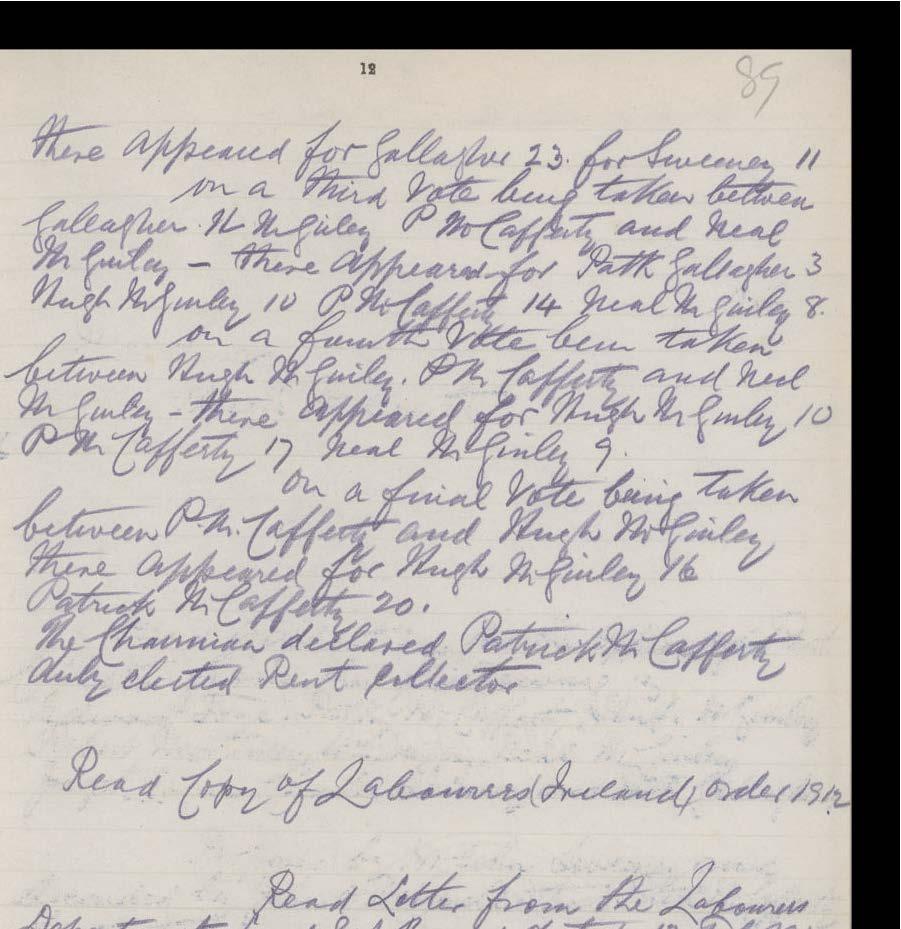 12
89
there appeared for Gallagher 23. for Sweeney 11
on a third Vote being taken between
Gallagher. H McGinley P McCafferty and Neal
McGinley - there appeared for Patk Gallagher 3
Hugh McGinley 10 P McCafferty 14 Neal McGinley 8.
on a fourth Vote been taken
between Hugh McGinley. P Mc Cafferty and Neal
McGinley - there appeared for Hugh McGinley 10
P Mc Cafferty 17 Neal McGinley 9.
on a final Vote being taken
between P. Mc. Cafferty and Hugh McGinley
there appeared for Hugh McGinley 16
Patrick McCafferty 20.
The Chairman declared Patrick McCafferty
duly elected Rent Collector
Read Copy of Labourers (Ireland) Order 1912
Read Letter from the Labourers